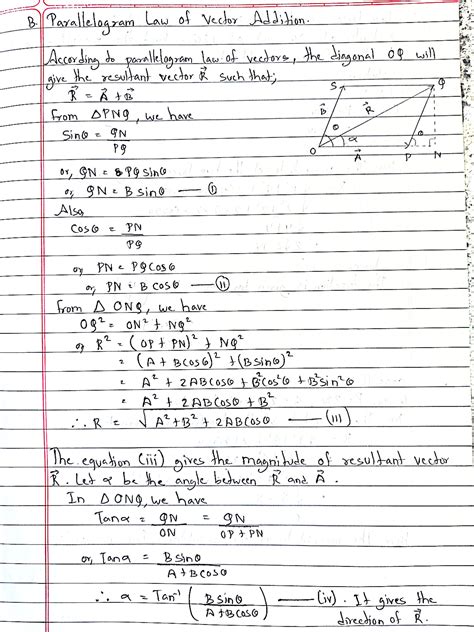 B. Parallelogram Law of Vector Addition.
According to parallelogram law of vectors, the diagonal OQ will
give the resultant vector R⃗ such that;
R⃗ = A⃗ + B⃗
From ΔPNQ, we have
Sinθ = QN/PQ
or, QN = PQ sinθ
or, QN = B sinθ — (i)
Also,
Cosθ = PN/PQ
or, PN = PQ Cosθ
or, PN = B Cosθ — (ii)
From Δ ONQ, we have
OQ² = ON² + NQ²
or, R² = (OP + PN)² + NQ²
= (A + B Cosθ)² + (B Sinθ)²
= A² + 2AB Cosθ + B² Cos²θ + B² Sin²θ
= A² + 2AB Cosθ + B²
∴ R = √(A² + B² + 2AB Cosθ) — (iii)
S
Q
B⃗
R⃗
θ
α
θ
O
A⃗
P
N
The equation (iii) gives the magnitude of resultant vector
R⃗. Let α be the angle between R⃗ and A⃗.
In Δ ONQ, we have
Tanα = QN/ON = QN/OP + PN
or, Tanα = B Sinθ/A + B Cosθ
∴ α = Tan⁻¹ (B Sinθ/A + B Cosθ) — (iv). It gives the
direction of R⃗.